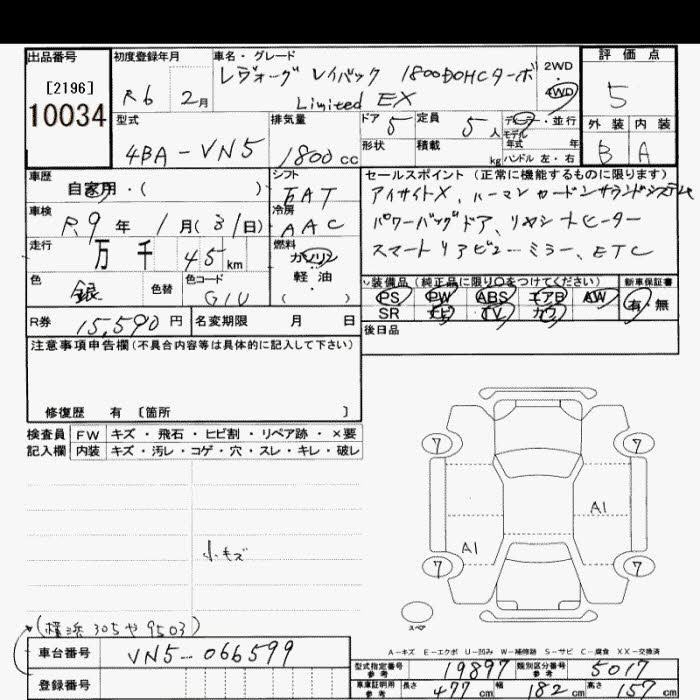 出品番号
[2196]
10034
初度登録年月
R6 2月
車名・グレード
レヴォーグ レイバック 1800DOHCターボ
Limited EX
2WD
・
4WD
評価点
5
外装 内装
B A
型式
4BA-VN5
排気量
1800cc
ドア
5
定員
5人
ディーラー・並行
モデル
年式 年
形状
積載 kg
ハンドル 左・右
車歴
自家用・( )
シフト
FAT
車検
R.9年 1月(31日)
冷房
AAC
走行
万 千 45km
燃料
ガソリン
・
軽油
( )
色
銀
色替
色コード
G1U
R券 15,590円
名変期限 月 日
セールスポイント (正常に機能するものに限ります)
アイサイトX、ハーマンカードンサウンドシステム
パワーバックドア、リヤシートヒーター
スマートリアビューミラー、ETC
装備品(純正品に限り○をつけてください)
PS PW ABS エアB AW
SR ナビ TV カワ
新車保証書
有・無
後日品
注意事項申告欄(不具合内容等は具体的に記入して下さい)
修復歴 有 〔箇所 〕
検査員 FW キズ・飛石・ヒビ割・リペア跡・×要
記入欄 内装 キズ・汚レ・コゲ・穴・スレ・キレ・破レ
小キズ
7 7
A1
A1
7 7
スペア
A-キズ E-エクボ U-凹み W-補修跡 S-サビ C-腐食 XX-交換済
(横浜 305 や 9503)
車台番号 VN5-066599
登録番号
型式指定番号 参考 19897 類別区分番号 参考 5017
車庫証明用 参考 長さ 477cm 幅 182cm 高さ 157cm